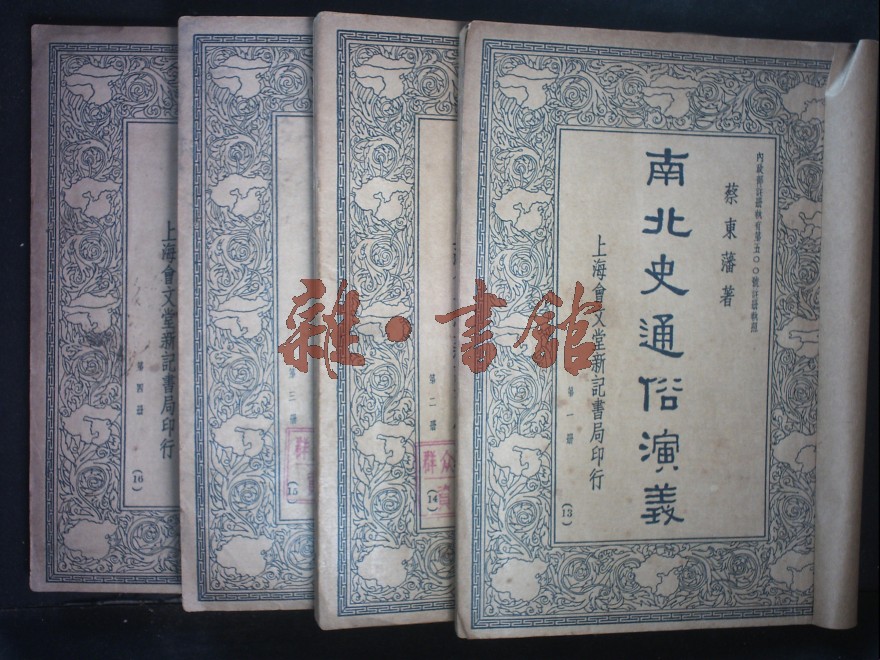 內政部註冊執有第五〇〇號註冊執照
蔡東藩著
南北史通俗演義
上海會文堂新記書局印行
第一冊
(13)
第二冊
(14)
群众
第三冊
(15)
群
上海會文堂新記書局印行
第四冊
(16)
雜·書館